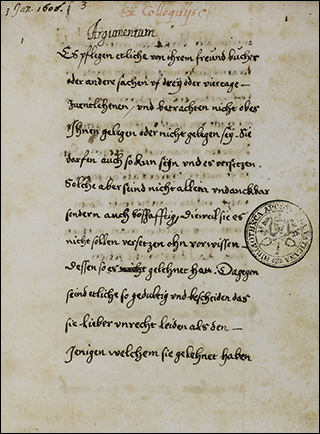 1 Jan. 1606.
3
Ex Colloquijs
Argumentum
Es pflegen etliche von ihrem freund bücher
oder andere sachen vf drey oder vier tage
Zuentlehenen, vnd betrachten nicht ob es
Ihnen gelegen oder nicht gelegen sey. Sie
dörfen auch so kün sein vnd es versetzen.
Solche aber seind nicht allein vndanckbar
sondern auch boßhafftig, dieweil sie es
nicht sollen versetzen ohn vorwissen
dessen so es gelehnet hatt. Dagegen
seind etliche so gedultig vnd bescheiden das
sie lieber vnrecht leiden als den
Jenigen welchem sie gelehnet haben
BIBLIOTHECA VATICANA